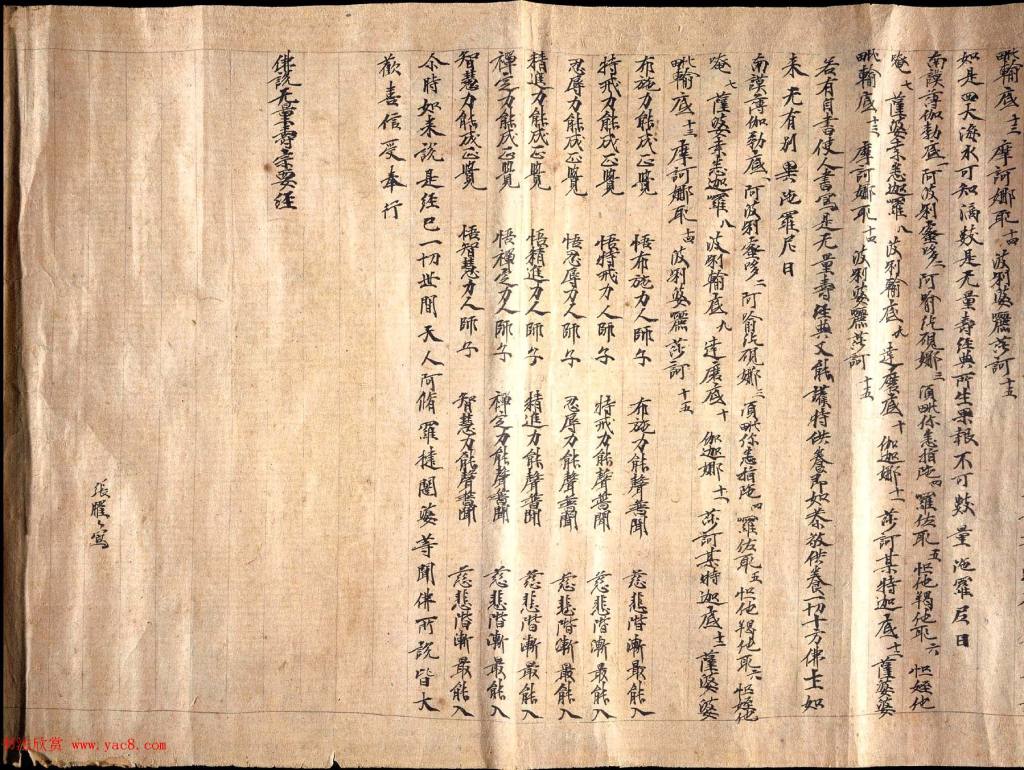 毗輸底十三 摩訶娜取十四 波剁婆羅莎訶十五
如是四大海水可知滴數是无量壽經典所生果報不可數量 陁羅尼曰
南謨薄伽勃底一 阿波剁蜜哆二 阿喻紇硯娜三 須毗你悉指陁四 羅佐取五 怛他羯他取六 怛姪他
唵七 薩婆桒悉迦羅八 波剁輸底九 達磨底十 伽迦娜十一 莎訶某特迦底十二 薩婆婆
毗輸底十三 摩訶娜取十四 波剁婆羅莎訶十五
若有自書使人書寫是无量壽經典又能護持供養即如恭敬供養一切十方佛土如
来无有别異 陁羅尼曰
南謨薄伽勃底一 阿波剁蜜哆二 阿喻紇硯娜三 須毗你悉指陁四 羅佐取五 怛他羯他取六 怛姪他
唵七 薩婆桒悉迦羅八 波剁輸底九 達磨底十 伽迦娜十一 莎訶某特迦底十二 薩婆婆
毗輸底十三 摩訶娜取十四 波剁婆羅莎訶十五
布施力能成正覺 悟布施力人師子 布施力能聲普聞 慈悲階漸最能入
持戒力能成正覺 悟持戒力人師子 持戒力能聲普聞 慈悲階漸最能入
忍辱力能成正覺 悟忍辱力人師子 忍辱力能聲普聞 慈悲階漸最能入
精進力能成正覺 悟精進力人師子 精進力能聲普聞 慈悲階漸最能入
禪定力能成正覺 悟禪定力人師子 禪定力能聲普聞 慈悲階漸最能入
智慧力能成正覺 悟智慧力人師子 智慧力能聲普聞 慈悲階漸最能入
尒時如来說是經已一切世間天人阿脩羅揵闥婆等聞佛所說皆大
歡喜信受奉行
佛說无量壽宗要經
張䐄々寫
书法欣赏 www.yac8.com